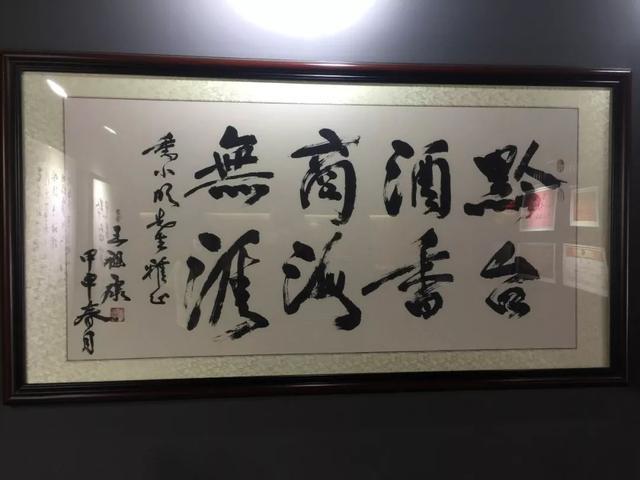 黔台
酒香
商海
無涯
乔小明堂雅正
王祖康
甲申春月